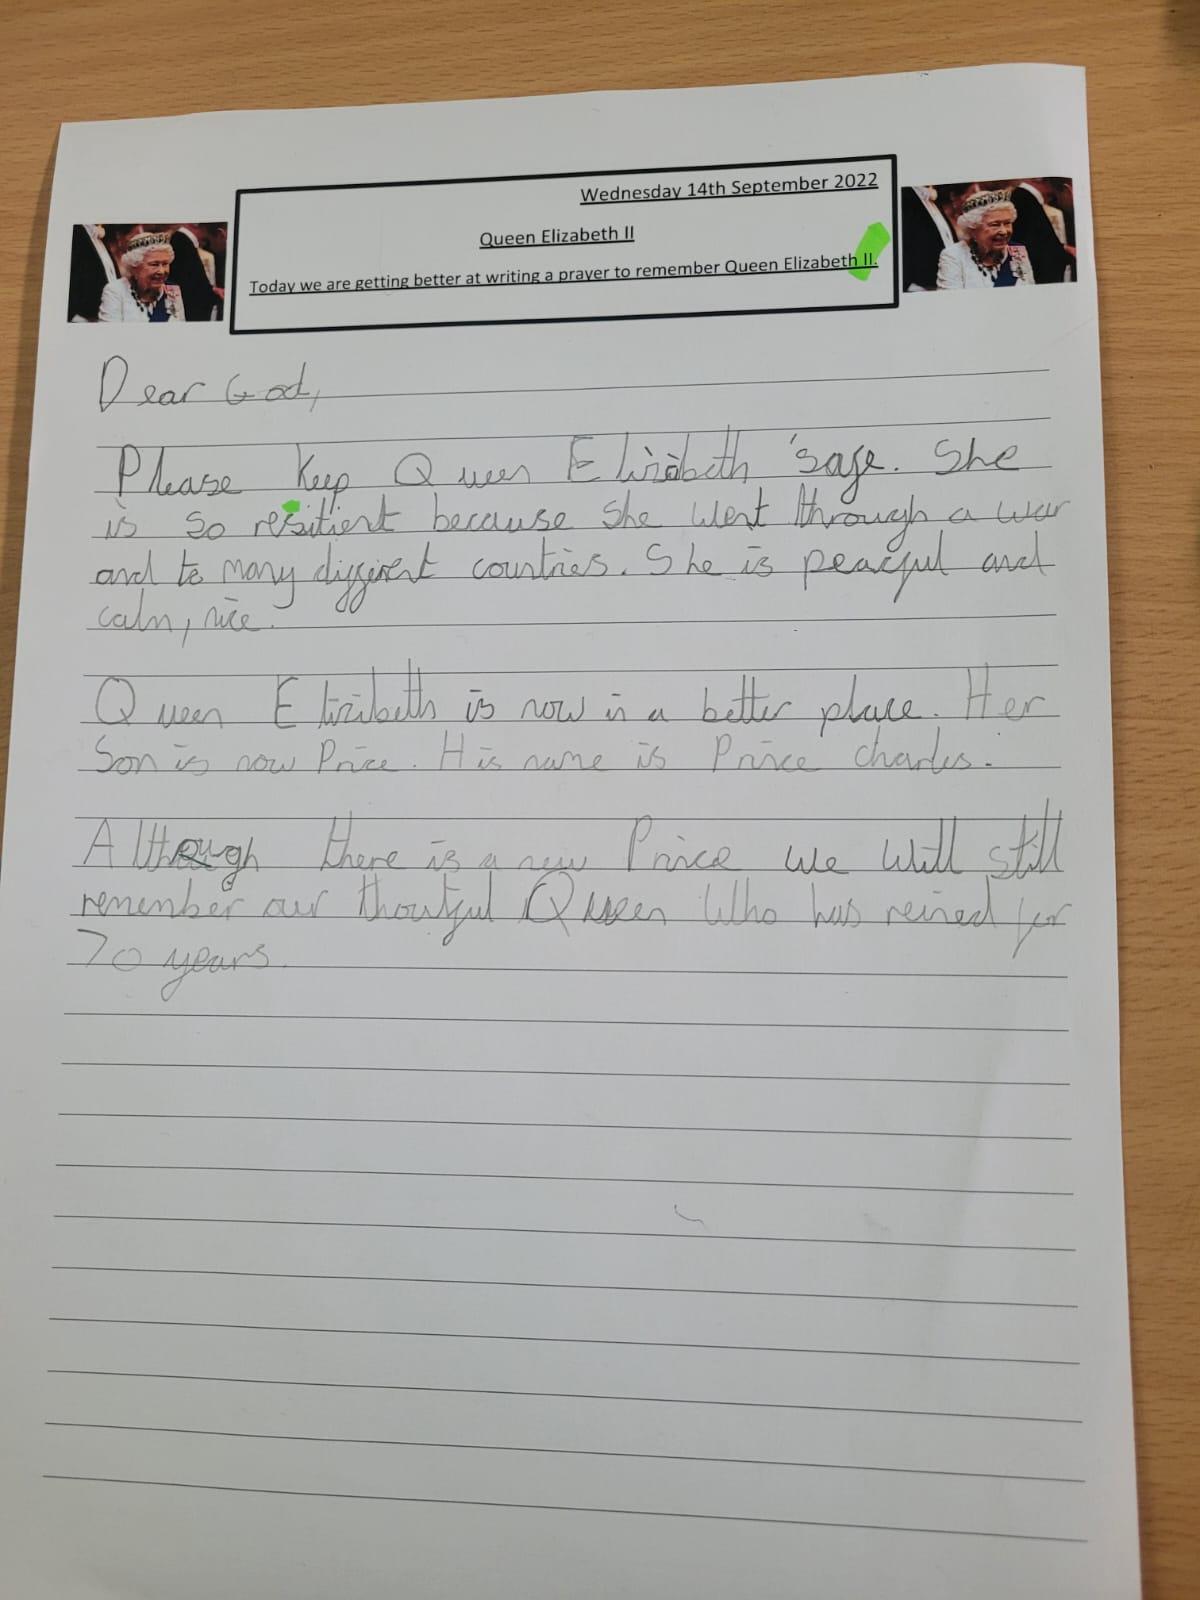 Wednesday 14th September 2022
Queen Elizabeth II
Today we are getting better at writing a prayer to remember Queen Elizabeth II.
Dear God,
Please keep Queen Elizabeth safe. She
is so resilient because she went through a war
and to many different countries. She is peaceful and
calm, nice.
Queen Elizabeth is now in a better place. Her
Son is now Price. His name is Prince charles.
Although there is a new Prince we will still
remember our thoutful Queen Who has reined for
70 years.